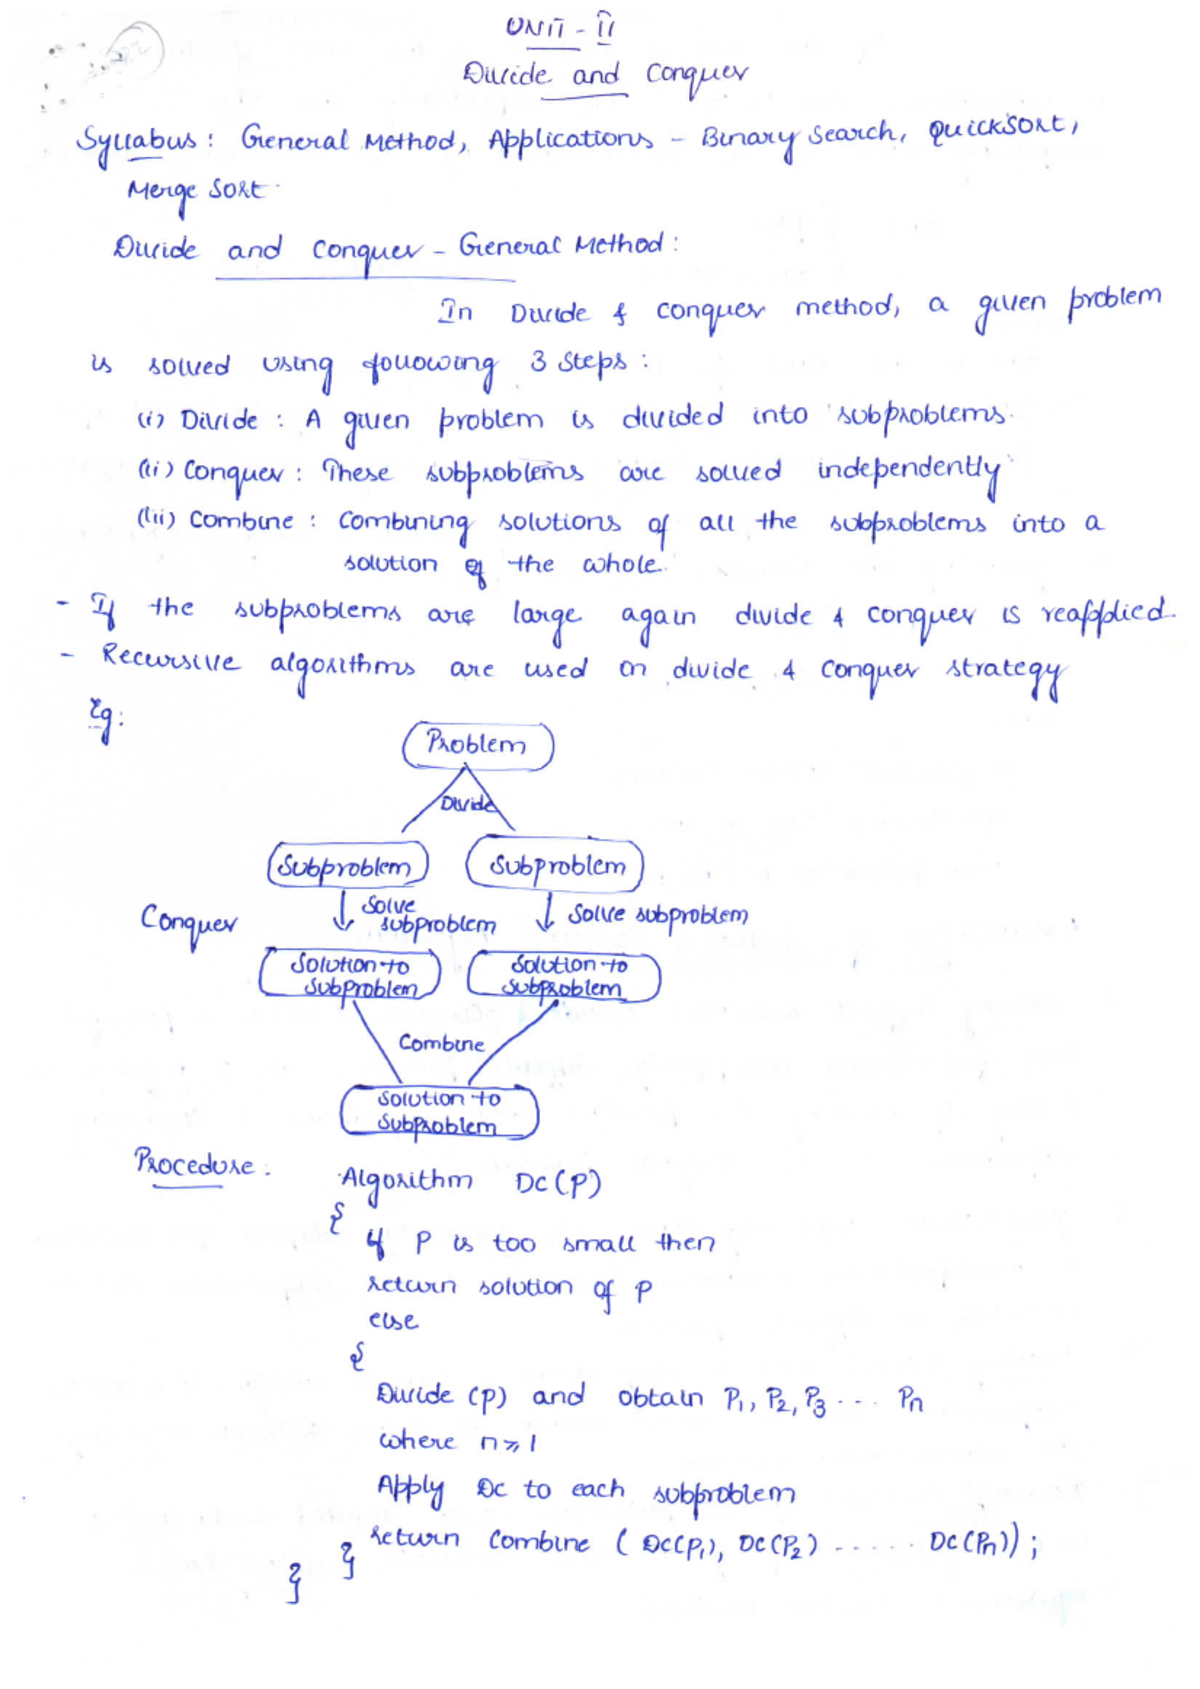 UNIT - II
Divide and Conquer
Syllabus : General Method, Applications - Binary Search, Quicksort,
Merge Sort.
Divide and Conquer - General Method :
In Divide & conquer method, a given problem
is solved using following 3 steps :
(i) Divide : A given problem is divided into subproblems.
(ii) Conquer : These subproblems are solved independently
(iii) Combine : Combining solutions of all the subproblems into a
solution of the whole.
- If the subproblems are large again divide & conquer is reapplied.
- Recursive algorithms are used in divide & conquer strategy
Eg :
Problem
Divide
Subproblem Subproblem
Conquer
Solve subproblem Solve subproblem
Solution to subproblem Solution to subproblem
Combine
Solution to
Subproblem
Procedure :
Algorithm DC(P)
{
if P is too small then
return solution of P
else
{
Divide (P) and obtain P1, P2, P3 ... Pn
where n ≥ 1
Apply DC to each subproblem
return combine ( DC(P1), DC(P2) ..... DC(Pn)) ;
}
}